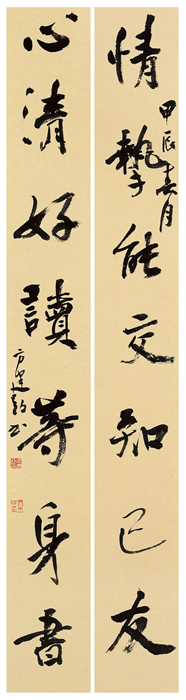 情摯能交知己友
甲辰春月
心清好讀等身書
方建勋书